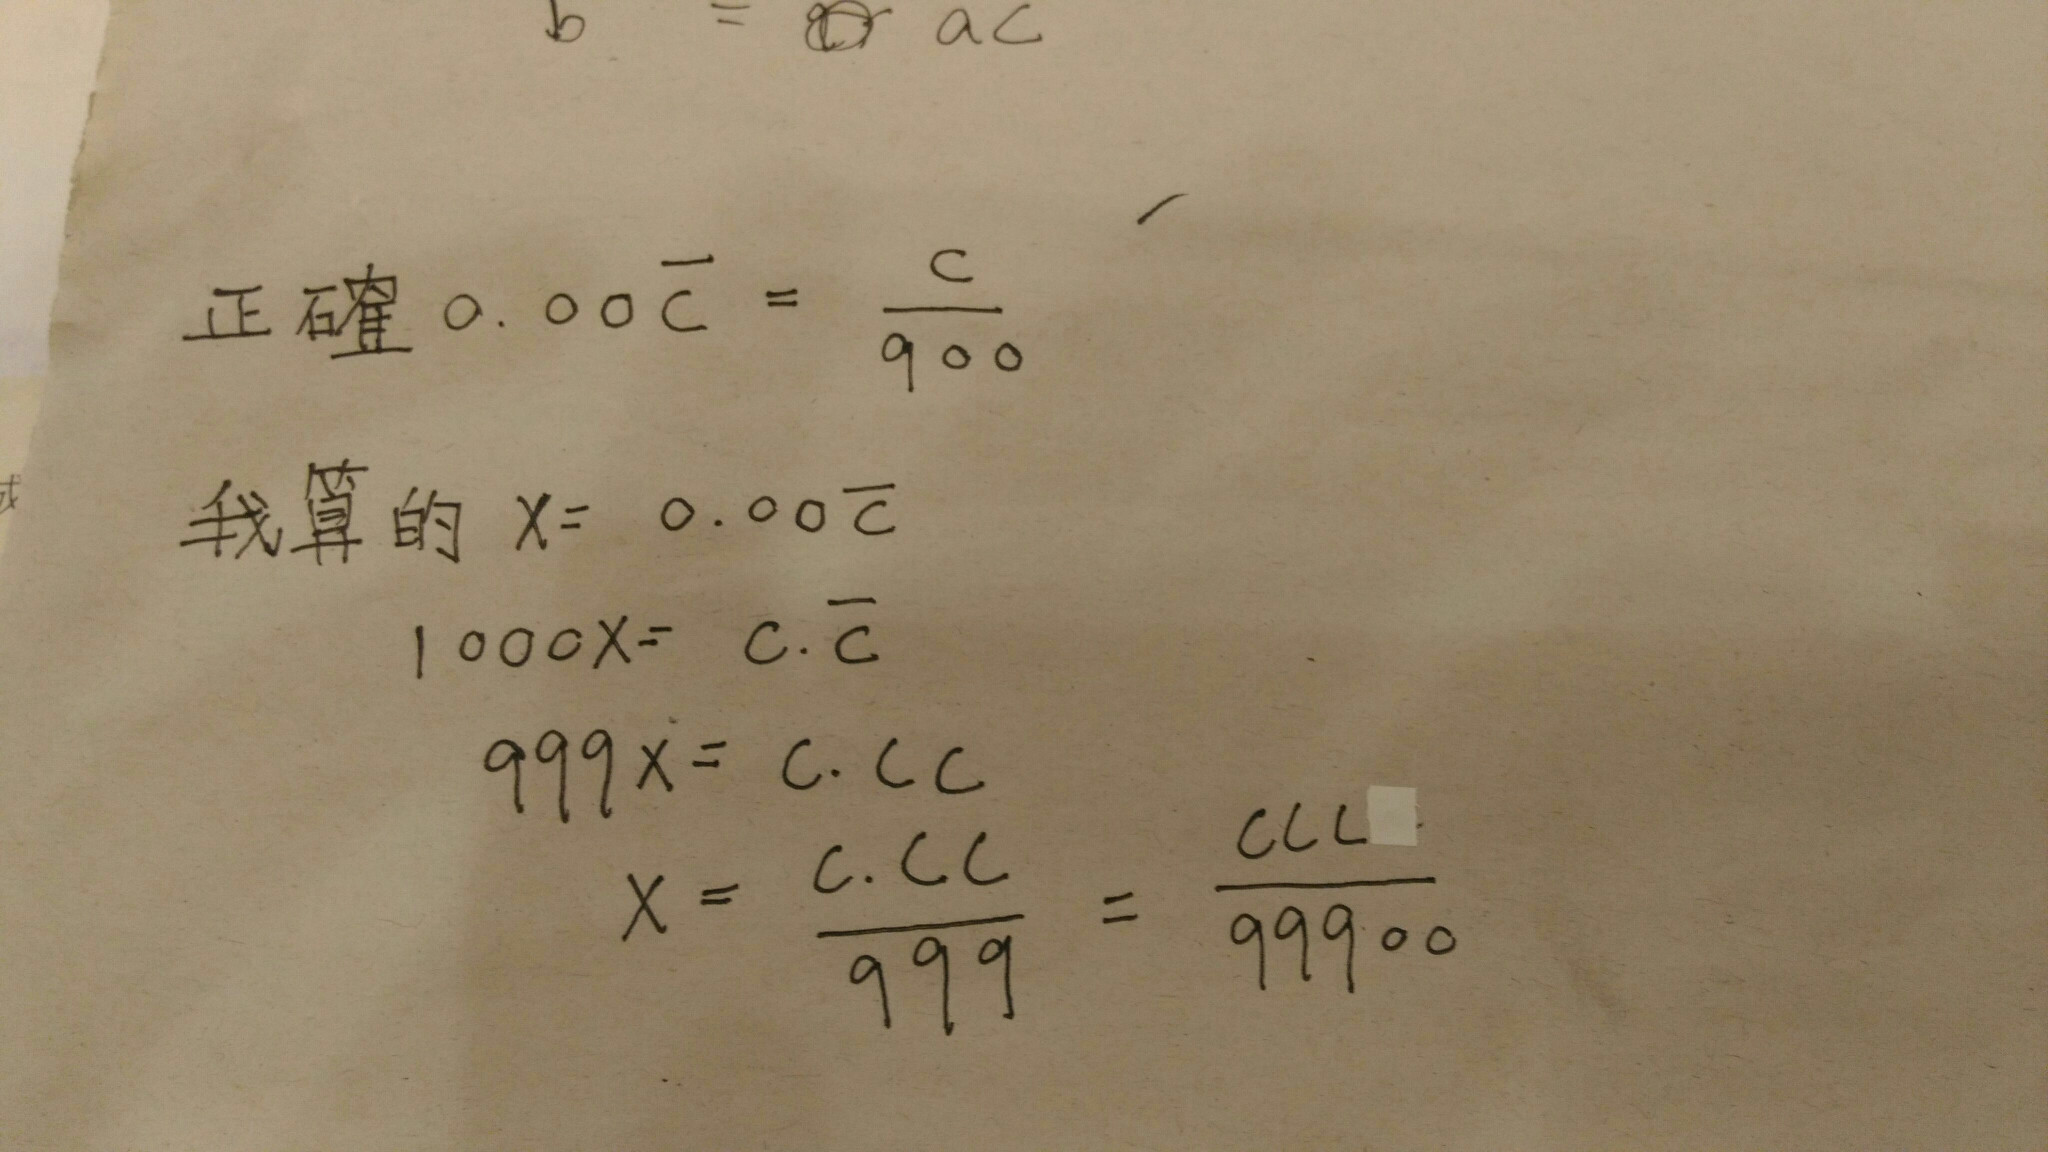 b = ac
正確 0.00c̅ = c/900
我算的 x = 0.00c̅
1000x = c.c̅
999x = c.cc
x = c.cc/999 = ccc/99900